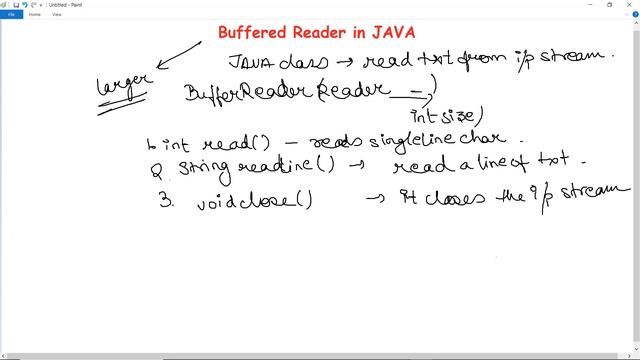 Untitled - Paint
File Home View
Buffered Reader in JAVA
JAVA class → read txt from i/p stream.
larger
BufferReader (Reader __ )
int size)
1. int read() - reads singleline char.
2. String readline() → read a line of txt.
3. void close() → it closes the i/p stream